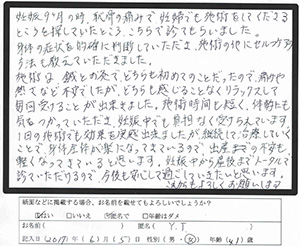 妊娠9ヶ月の時、恥骨の痛みで妊婦でも施術をしてくださる
ところを探していたところ、こちらで診てもらいました。
身体の症状を的確に判断していただき、施術の他にセルフケアの
方法も教えていただきました。
施術は、鍼とお灸で、どちらも初めてのことだったので、痛みや
熱さなど不安でしたが、どちらも感じることなくリラックスして
毎回受けることが出来ました。施術時間も短く、体勢にも
気をつかっていただき、妊娠中でも負担なく受けられています。
1回の施術でも効果を実感出来ましたが、継続して治療していく
ことで、身体全体が楽になってきているので、出産までの不安も
軽くなってきていると思います。妊娠中から産後までトータルで
診ていただけるので、今後も安心して過ごしていきたいと思います。
よろしくお願いします
紙面などに掲載する場合、お名前を載せてもよろしいでしょうか?
はい いいえ 匿名で 年齢はダメ
お名前( ) 匿名( Y.T )
記入日(2017)年(6)月(5)日 性別(男・女) 年齢( 41 )歳